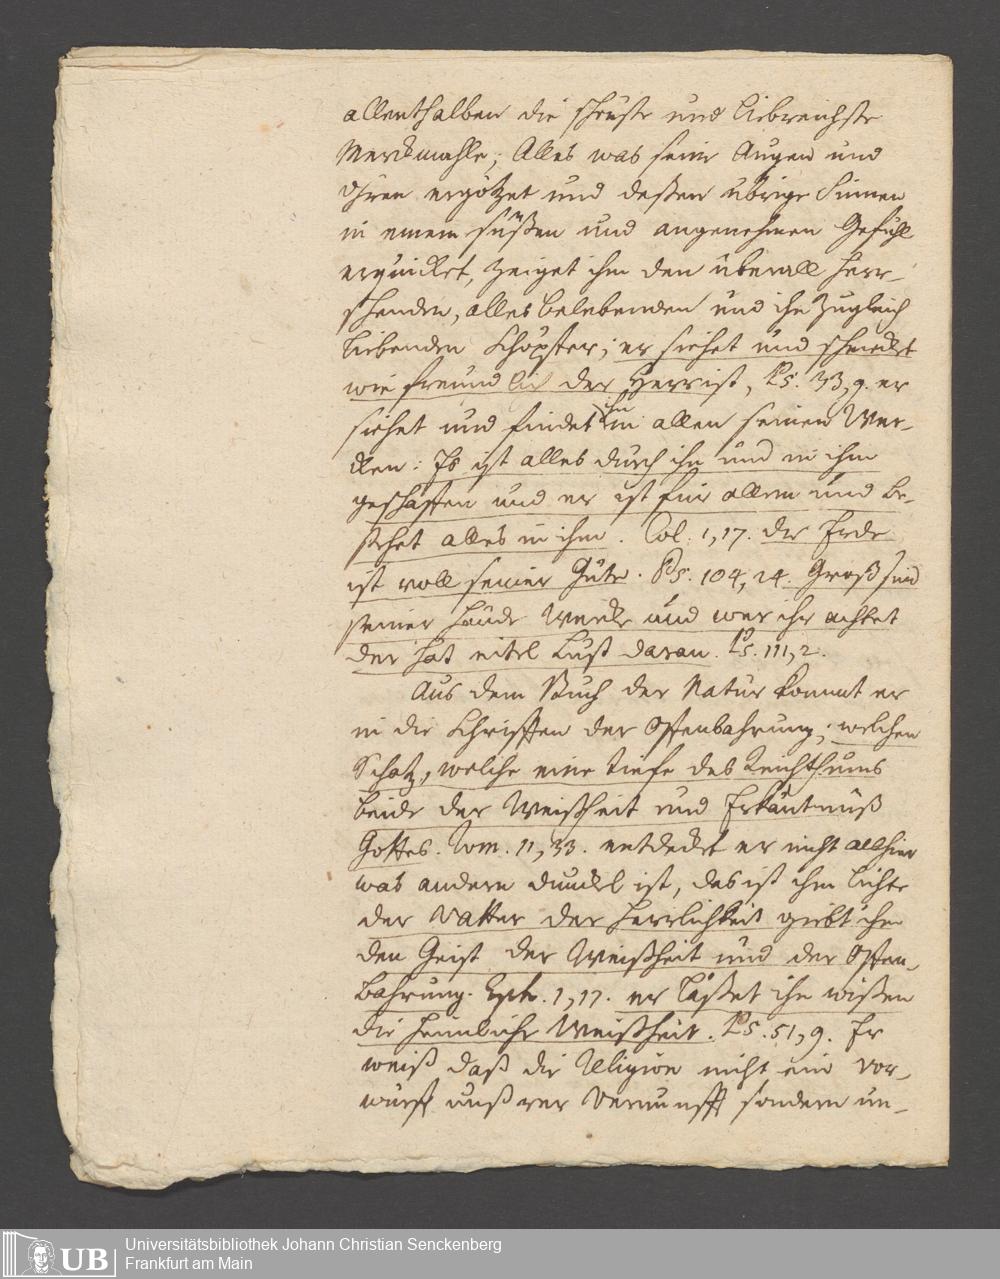 allenthalben die schönste und liebreichste
Merckmahle; Alles was seine Augen und
Ohren ergötzet und deßen übrige Sinnen
in einem süßen und angenehmen Gefühl
erquicket, zeiget ihm den überall herr-
schenden, alles belebenden und ihn zugleich
liebenden Schöpffer; er siehet und schmecket
wie freundlich der Herr ist, Ps. 33, 9. er
siehet und findet ihn in allen seinen Wer-
cken: Es ist alles durch ihn und in ihm
geschaffen und er ist für allem und be-
stehet alles in ihm. Col. 1, 17. die Erde
ist voll seiner Güte. Ps. 104, 24. Groß sind
seiner Hände Wercke und wer ihr achtet
der hat eitel Lust daran. Ps. 111, 2.
Aus dem Buch der Natur kommt er
in die Schrifften der Offenbahrung; welchen
Schatz, welche eine tiefe des Reichthums
beide der Weißheit und Erkäntnüß
Gottes. Rom. 11, 33. entdecket er nicht allhier
was andern dunckel ist, das ist ihm lichte
der Vatter der Herrlichkeit giebt ihm
den Geist der Weißheit und der Offen-
bahrung. Eph. 1, 17. er läßet ihn wißen
die heimliche Weißheit. Ps. 51, 9. Er
weiß daß die Religion nicht ein Vor-
wurff unßrer Vernunfft sondern un-
Universitätsbibliothek Johann Christian Senckenberg
Frankfurt am Main
UB